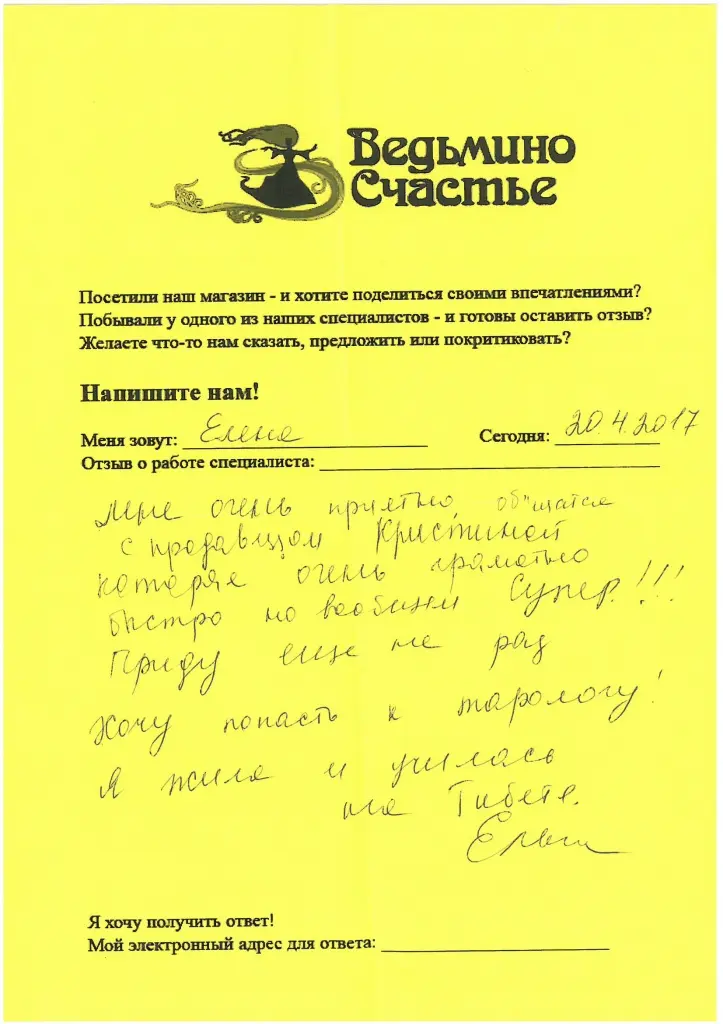 Ведьмино
Счастье
Посетили наш магазин - и хотите поделиться своими впечатлениями?
Побывали у одного из наших специалистов - и готовы оставить отзыв?
Желаете что-то нам сказать, предложить или покритиковать?
Напишите нам!
Меня зовут: Елена Сегодня: 20.4.2017
Отзыв о работе специалиста:
Мне очень приятно общатся
с продавцом Кристиной
которая очень граматно
быстро но Супер!!!
Приду еще не раз
Хочу попасть к тарологу!
Я жила и училась
на Тибете.
Я хочу получить ответ!
Мой электронный адрес для ответа: